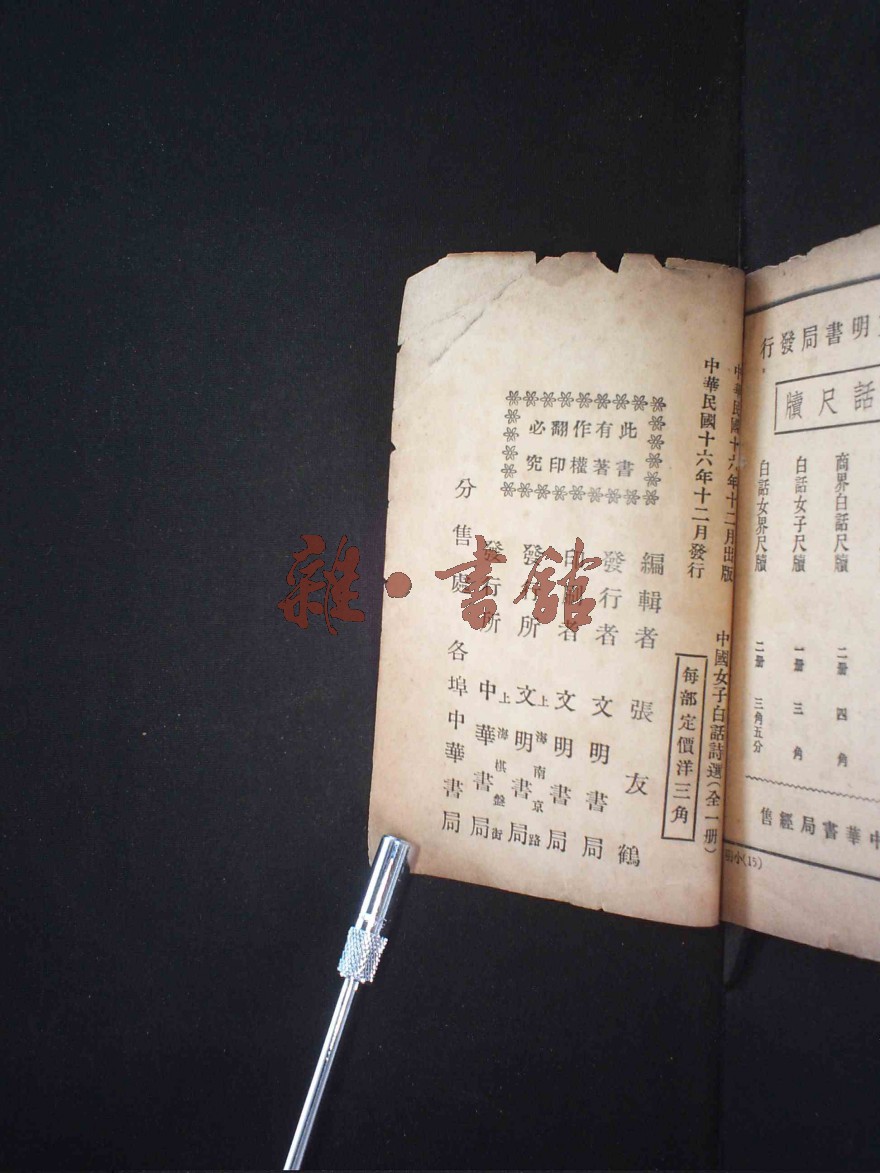 明書局發行
話尺牘
商界白話尺牘 二册 四角
白話女子尺牘 一册 三角
白話女界尺牘 二册 三角五分
中華書局經售
小(15)
中華民國十六年十二月出版
中華民國十六年十二月發行
中國女子白話詩選(全一册)
每部定價洋三角
此書
有著
作權
翻印
必究
編輯者 張友鶴
發行者 文明書局
印刷者 文明書局
發行所 上海南京路 文明書局
發行所 上海棋盤街 中華書局
分售處 各埠中華書局
雜·書館